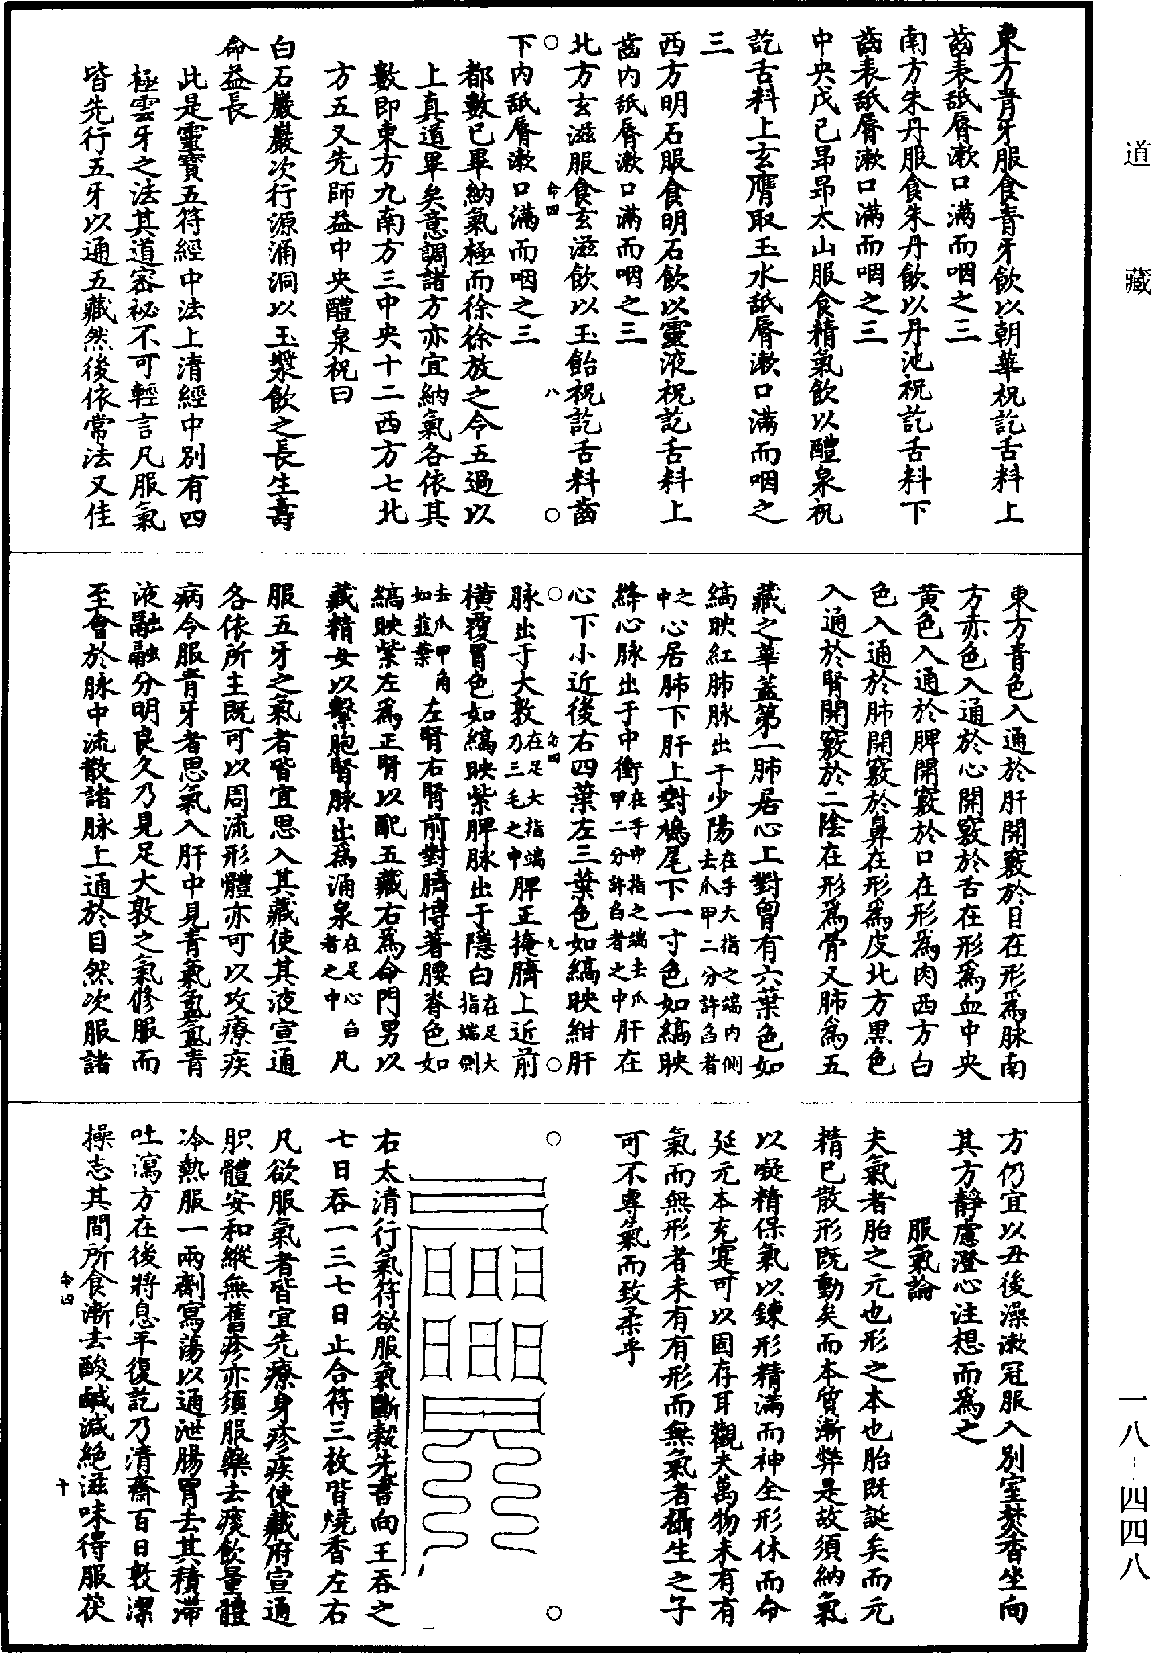 東方青牙服食青牙飲以朝華祝訖舌料上
齒表舐脣漱口滿而咽之三
南方朱丹服食朱丹飲以丹池祝訖舌料下
齒表舐脣漱口滿而咽之三
中央戊己昂昂太山服食精氣飲以醴泉祝
訖舌料上玄膺取玉水舐脣漱口滿而咽之
三
西方明石服食明石飲以靈液祝訖舌料上
齒內舐脣漱口滿而咽之三
北方玄滋服食玄滋飲以玉飴祝訖舌料齒
命四 八
下內舐脣漱口滿而咽之三
都數已畢納氣極而徐徐放之令五過以
上真道畢矣意調諸方亦宜納氣各依其
數即東方九南方三中央十二西方七北
方五又先師益中央醴泉祝曰
白石巖巖次行源涌洞以玉漿飲之長生壽
命益長
此是靈寶五符經中法上清經中別有四
極雲牙之法其道密祕不可輕言凡服氣
皆先行五牙以通五藏然後依常法又佳
東方青色入通於肝開竅於目在形為脉南
方赤色入通於心開竅於舌在形為血中央
黃色入通於脾開竅於口在形為肉西方白
色入通於肺開竅於鼻在形為皮北方黑色
入通於腎開竅於二陰在形為骨又肺為五
藏之華蓋第一肺居心上對胷有六葉色如
縞映紅肺脉出于少陽在手大指之端內側去爪甲二分許臽者
之中心居肺下肝上對鳩尾下一寸色如縞映
絳心脉出于中衝在手中指之端去爪甲二分許臽者之中肝在
心下小近後右四葉左三葉色如縞映紺肝
命四 九
脉出于大敦在足大指端乃三毛之中脾正掩臍上近前
橫覆胃色如縞映紫脾脉出于隱白在足大指端側
去爪甲角如韮葉左腎右腎前對臍博著腰脊色如
縞映紫左為正腎以配五藏右為命門男以
藏精女以繫胞腎脉出為涌泉在足心臽者之中凡
服五牙之氣者皆宜思入其藏使其液宣通
各依所主既可以周流形體亦可以攻療疾
病令服青牙者思氣入肝中見青氣氤氳青
液融融分明良久乃見足大敦之氣修服而
至會於脉中流散諸脉上通於目然次服諸
方仍宜以丑後澡漱冠服入別室焚香坐向
其方靜慮澄心注想而為之
服氣論
夫氣者胎之元也形之本也胎既誕矣而元
精已散形既動矣而本質漸弊是故須納氣
以凝精保氣以鍊形精滿而神全形休而命
延元本充寔可以固存耳觀夫萬物未有有
氣而無形者未有有形而無氣者攝生之子
可不專氣而致柔乎
右太清行氣符欲服氣斷穀先書向王吞之
七日吞一三七日止合符三枚皆燒香左右
凡欲服氣者皆宜先療身疹疾使藏府宣通
胑體安和縱無舊疹亦須服藥去痰飲量體
冷熱服一兩劑寫蕩以通泄腸胃去其積滯
吐瀉方在後將息平復訖乃清齋百日敦潔
操志其間所食漸去酸鹹減絕滋味得服茯
命四 十
道藏
一八-四四八